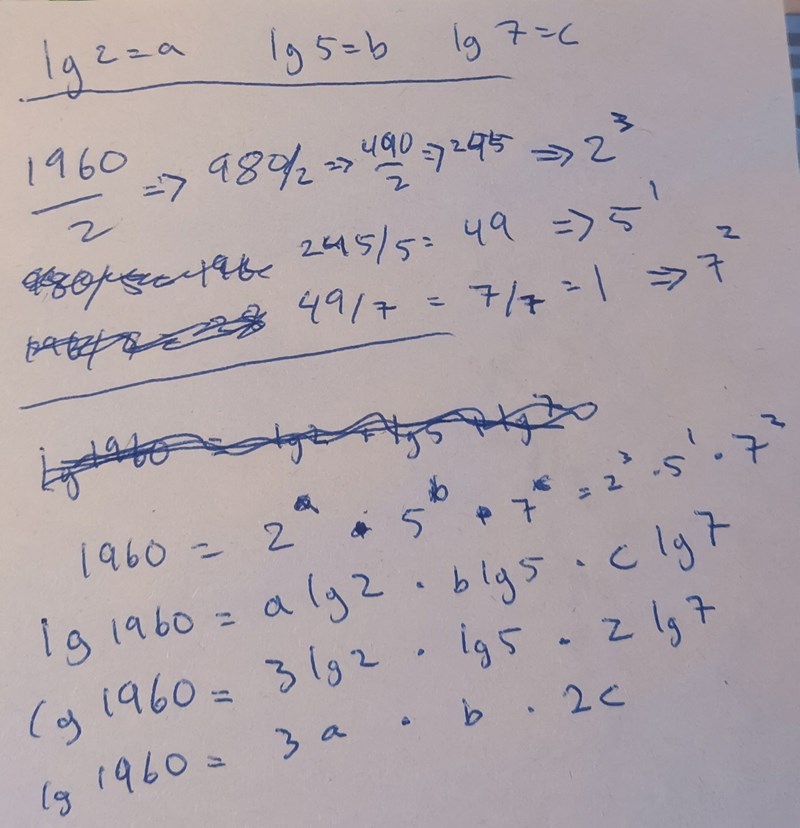 lg 2=a lg 5=b lg 7=c
1960/2 => 980/2 => 490/2 => 245 => 2^3
980/5=196 245/5= 49 => 5^1
49/7 = 7/7 = 1 => 7^2
lg 1960 = lg 2 + lg 5 + lg 7
1960 = 2^a · 5^b · 7^c = 2^3 · 5^1 · 7^2
lg 1960 = a lg 2 · b lg 5 · c lg 7
lg 1960 = 3 lg 2 · lg 5 · 2 lg 7
lg 1960 = 3a · b · 2c